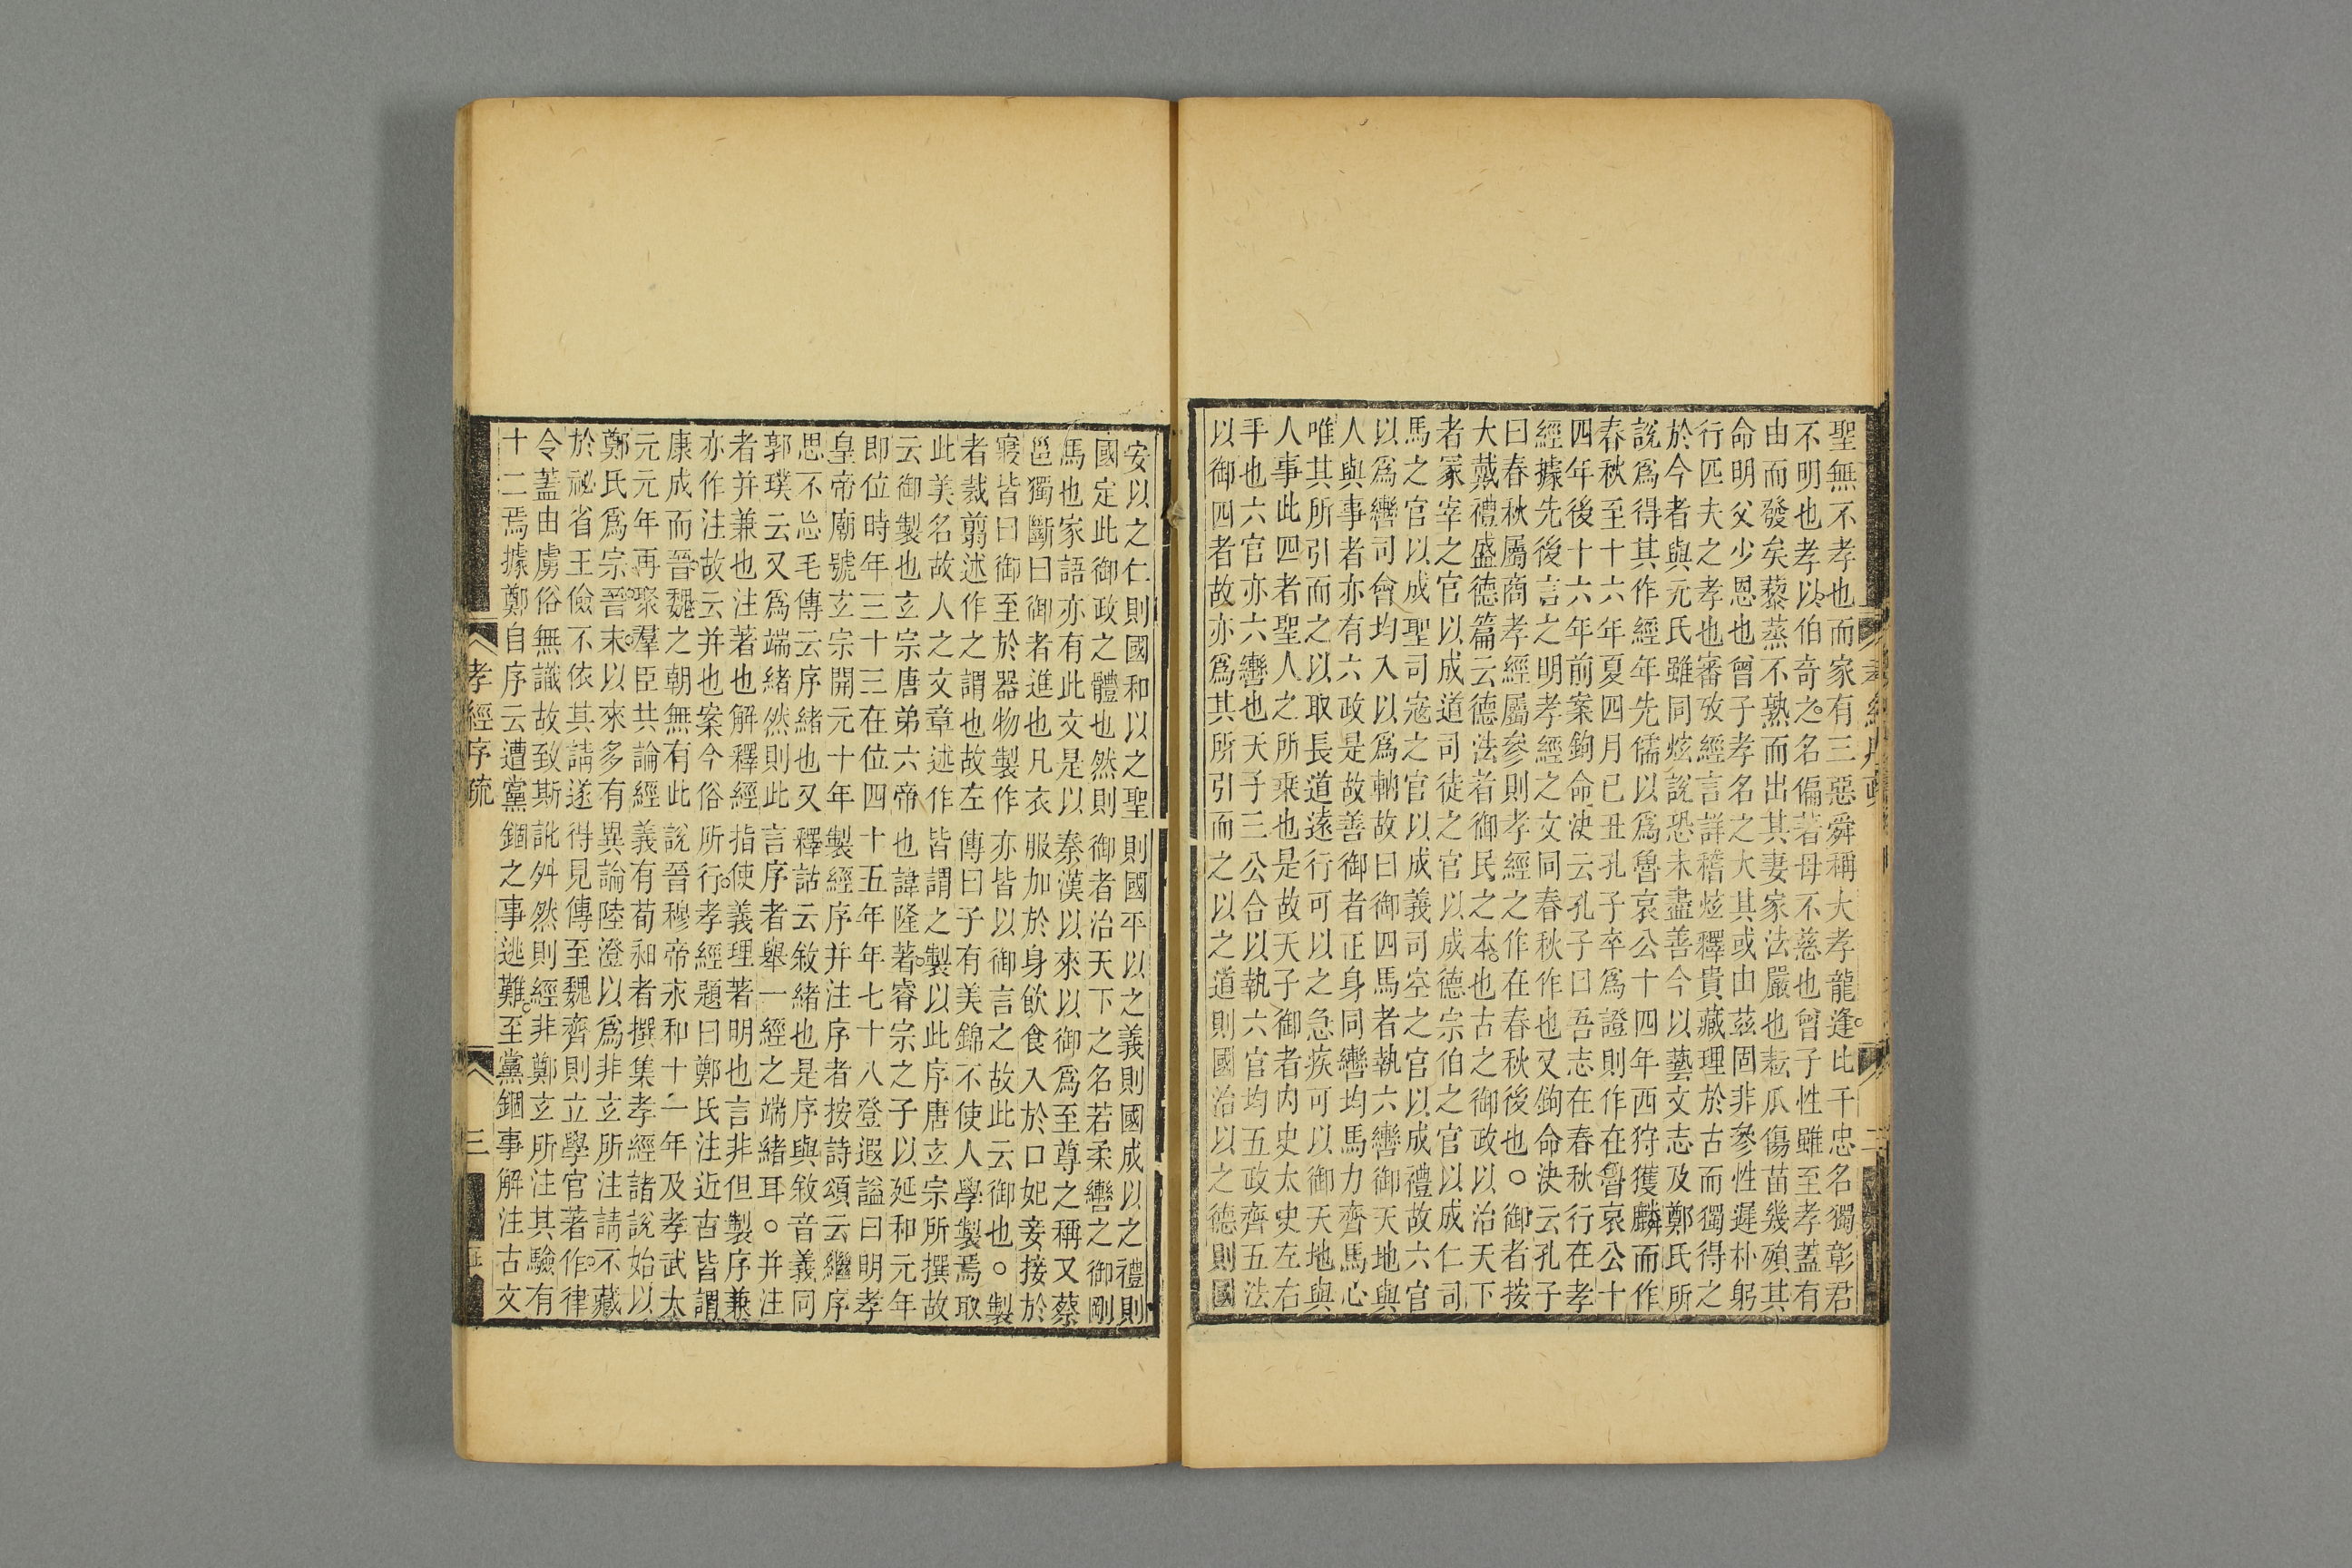 聖無不孝也而家有三惡舜稱大孝龍逢比干忠名獨彰君
不明也孝以伯奇之名偏著母不慈也曾子性雖至孝蓋有
由而發矣藜蒸不熟而出其妻家法嚴也耘瓜傷苗幾殞其
命明父少恩也曾子孝名之大其或由茲固非參性遲朴躬
行匹夫之孝也審攷經言詳稽炫釋貴藏理於古而獨得之
於今者與元氏雖同炫說恐未盡善今以藝文志及鄭氏所
說爲得其作經年先儒以爲魯哀公十四年西狩獲麟而作
春秋至十六年夏四月已丑孔子卒爲證則作在魯哀公十
四年後十六年前案鉤命決云孔子曰吾志在春秋行在孝
經據先後言之明孝經之文同春秋作也又鉤命決云孔子
曰春秋屬商孝經屬參則孝經之作在春秋後也○御者按
大戴禮盛德篇云德法者御民之本也古之御政以治天下
者冢宰之官以成道司徒之官以成德宗伯之官以成仁司
馬之官以成聖司寇之官以成義司空之官以成禮故六官
以爲轡司會均入以爲軜故曰御四馬者執六轡御天地與
人與事者亦有六政是故善御者正身同轡均馬力齊馬心
唯其所引而之以取長道遠行可以之急疾可以御天地與
人事此四者聖人之所乘也是故天子御者内史太史左右
手也六官亦六轡也天子三公合以執六官均五政齊五法
以御四者故亦爲其所引而之以之道則國治以之德則國
安以之仁則國和以之聖則國平以之義則國成以之禮則
國定此御政之體也然則御者治天下之名若柔轡之御剛
馬也家語亦有此文是以秦漢以來以御爲至尊之稱又蔡
邕獨斷曰御者進也凡衣服加於身飲食入於口妃妾接於
寢皆曰御至於器物製作亦皆以御言之故此云御也○製
者裁剪述作之謂也故左傳曰子有美錦不使人學製焉取
此美名故人之文章述作皆謂之製以此序唐玄宗所撰故
云御製也玄宗唐弟六帝也諱隆著睿宗之子以延和元年
即位時年三十三在位四十五年年七十八登遐謚曰明孝
皇帝廟號玄宗開元十年製經序并注序者按詩頌云繼序
思不忘毛傳云序緒也又釋詁云敘緒也是序與敘音義同
郭璞云又爲端緒然則此言序者舉一經之端緒耳○并注
者并兼也注著也解釋經指使義理著明也言非但製序兼
亦作注故云并也案今俗所行孝經題曰鄭氏注近古皆謂
康成而晉魏之朝無有此說晉穆帝永和十一年及孝武太
元元年再聚羣臣共論經義有荀昶者撰集孝經諸說始以
鄭氏爲宗晉末以來多有異論陸澄以爲非玄所注請不藏
於祕省王儉不依其請遂得見傳至魏齊則立學官著作律
令蓋由虜俗無識故致斯訛舛然則經非鄭玄所注其驗有
十二焉據鄭自序云遭黨錮之事逃難至黨錮事解注古文
孝經序疏
三